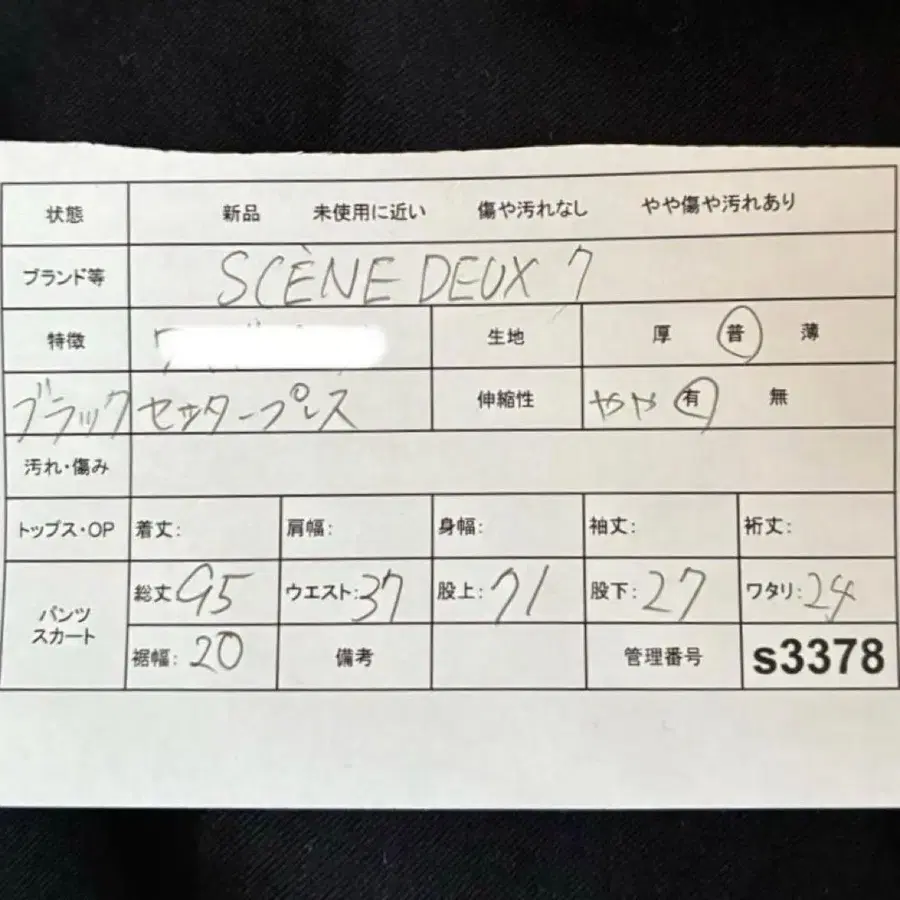 状態 新品 未使用に近い 傷や汚れなし やや傷や汚れあり
ブランド等 SCÈNE DEUX 7
特徴 生地 厚 普 薄
ブラック センタープレス 伸縮性 やや 有 無
汚れ・傷み
トップス・OP 着丈: 肩幅: 身幅: 袖丈: 裄丈:
パンツ スカート 総丈 95 ウエスト: 37 股上: 71 股下: 27 ワタリ: 24
裾幅: 20 備考 管理番号 s3378